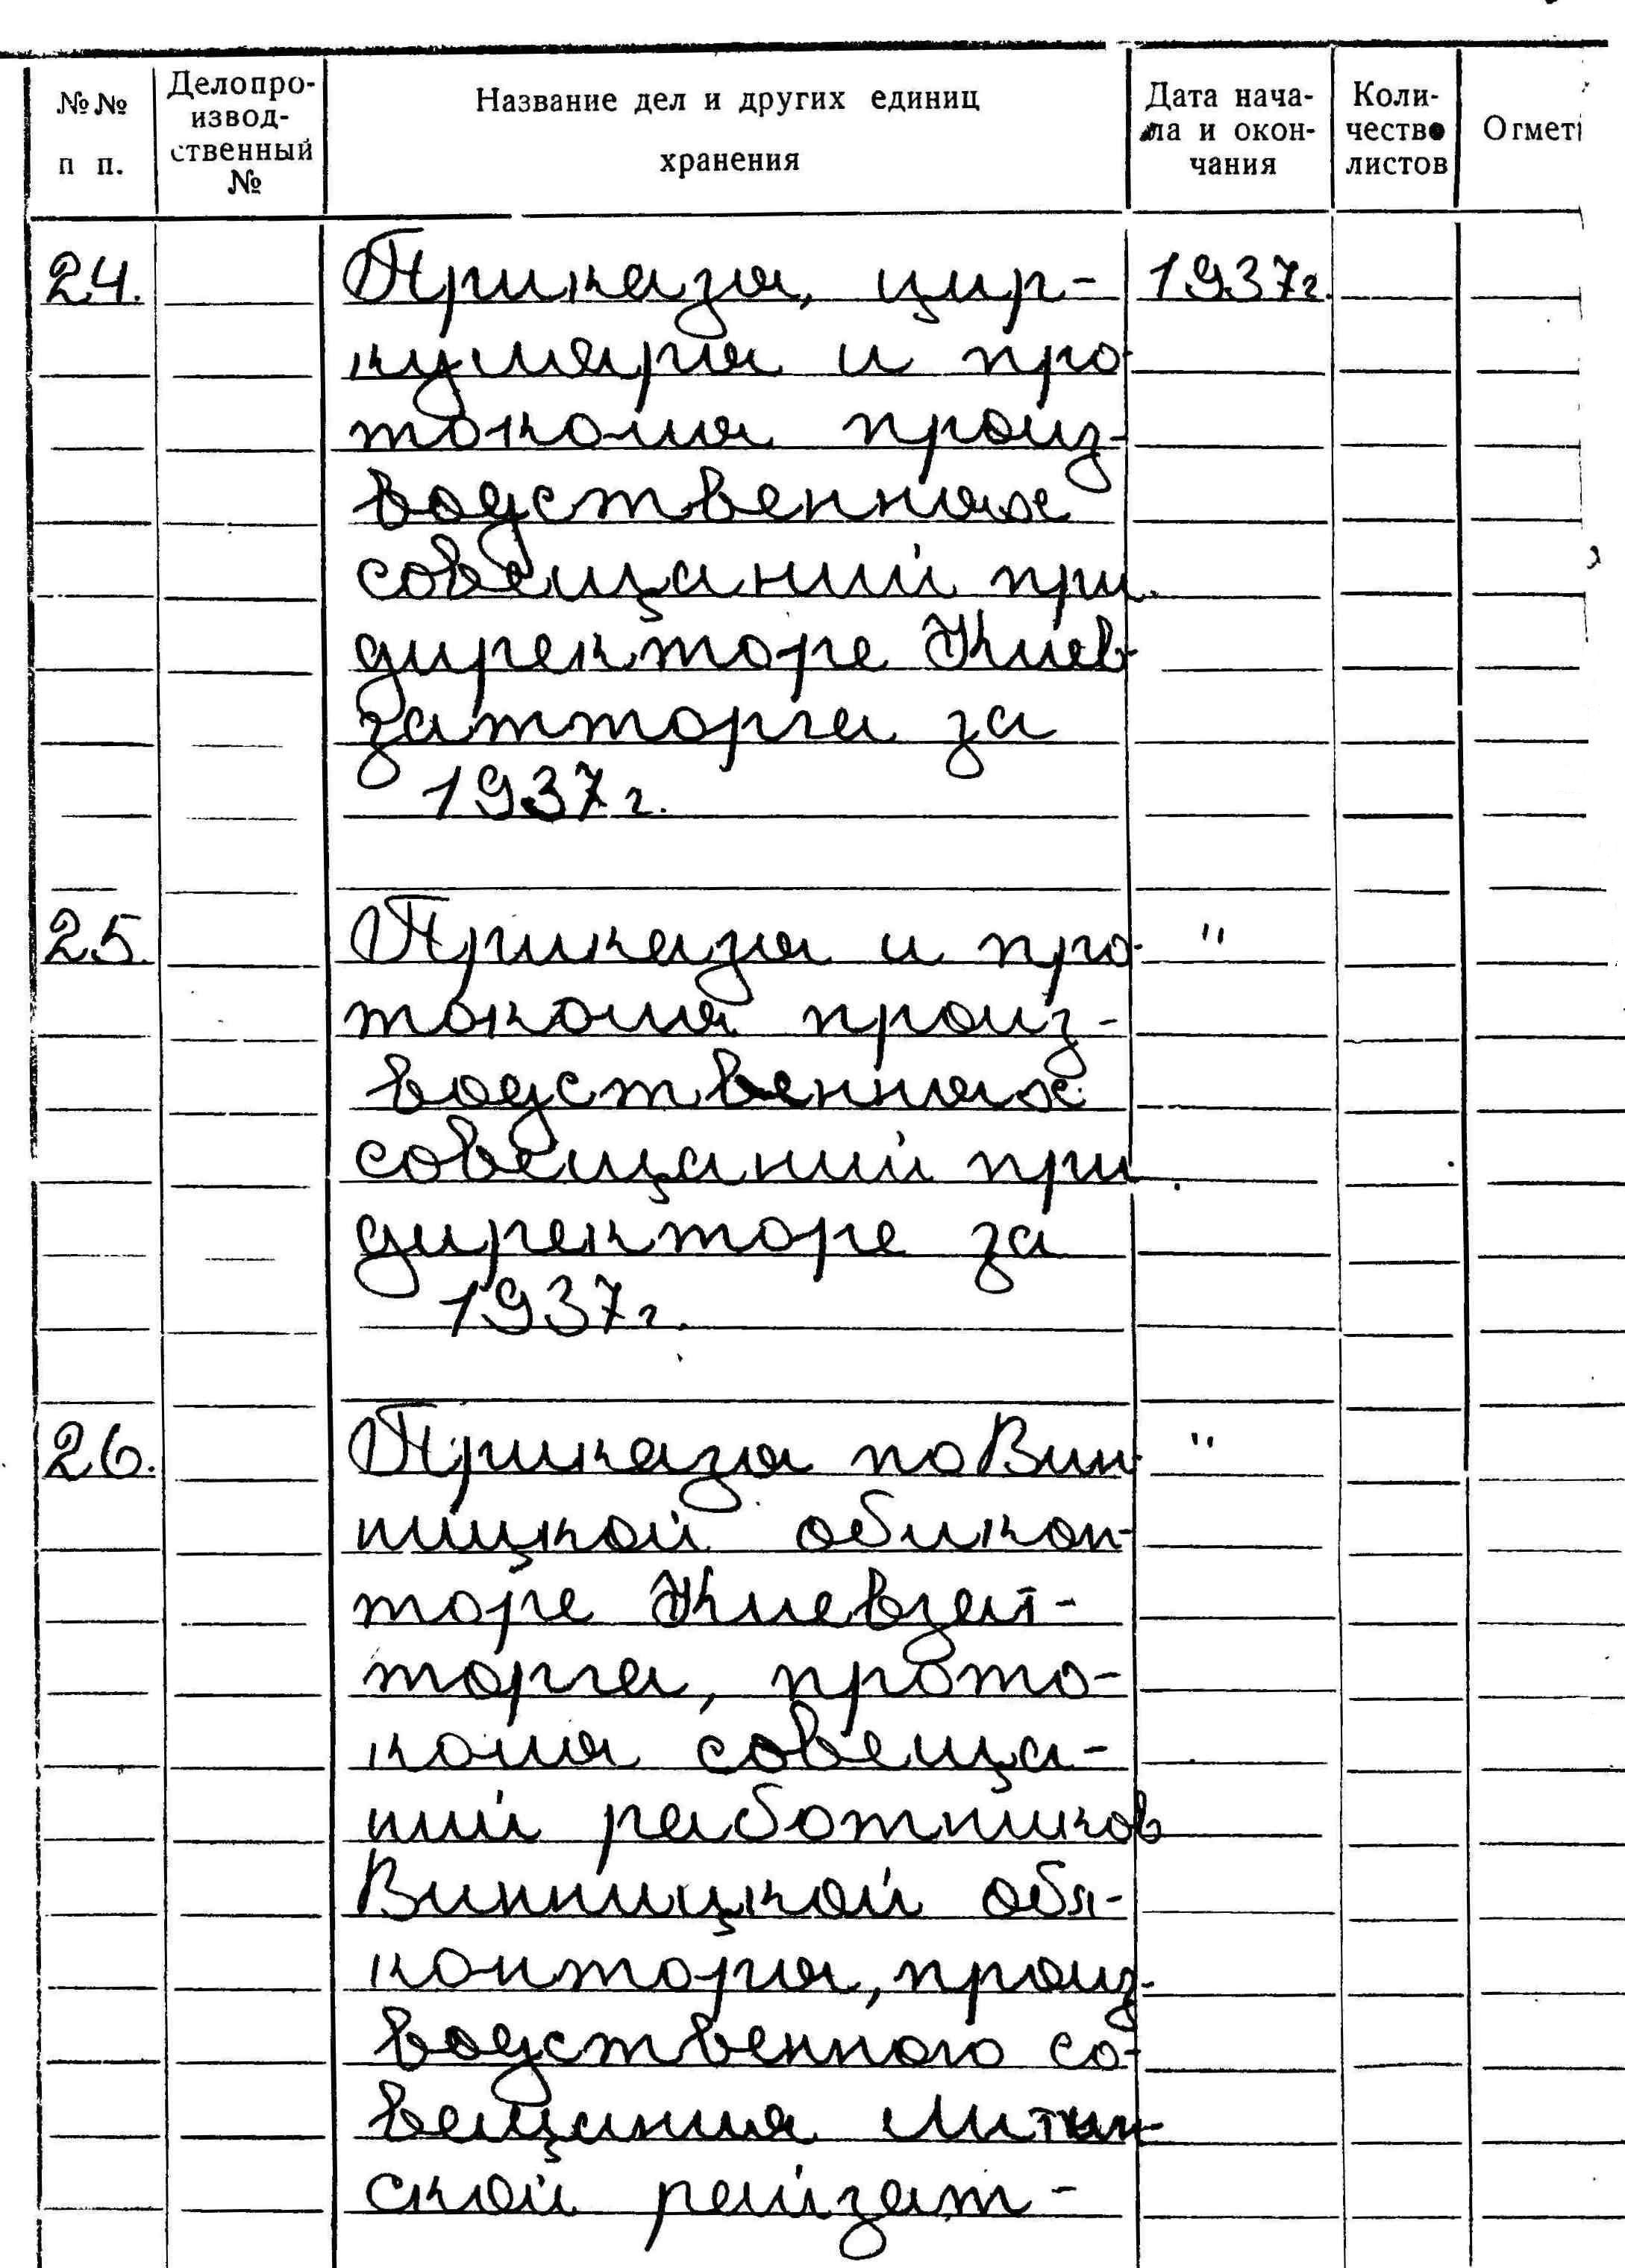 №№ п п.
Делопро-
извод-
ственный
№
Название дел и других единиц
хранения
Дата нача-
ла и окон-
чания
Коли-
чество
листов
Отмет
24. Приказы, цир- 1937г.
куляры и про-
токолы произ-
водственных
совещаний при
директоре Киев-
затторга за
1937г.
25. Приказы и про- "
токолы произ-
водственных
совещаний при
директоре за
1937г.
26. Приказы по Вин- "
ницкой облкон-
торе Киевзат-
торга, прото-
колы совеща-
ний работников
Винницкой обл-
конторы, произ-
водственного со-
вещания Литин-
ской райзат-